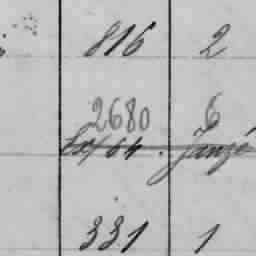 816 2
2680 6
64. Janzé
331 1